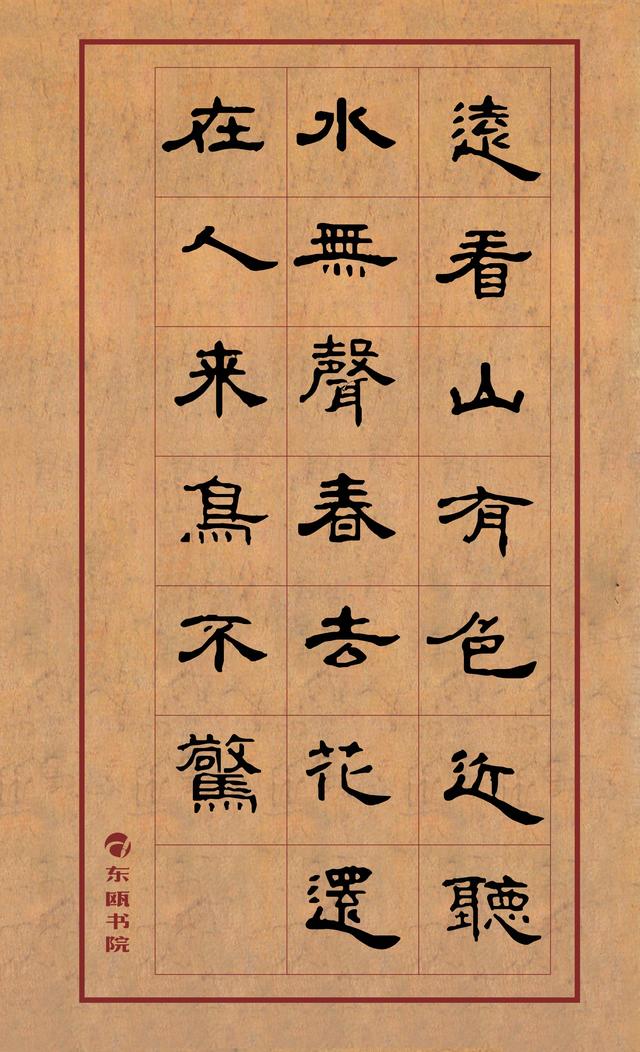 遠看山有色近聽
水無聲春去花還
在人来鳥不驚
东瓯书院